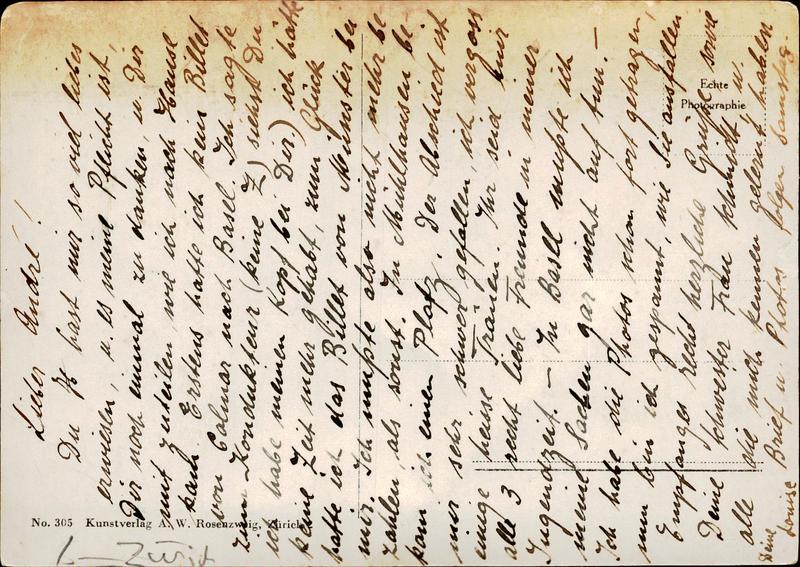 Lieber André!
Du hast mir so viel liebes
erwiesen, u. es meine Pflicht ist,
Dir noch einmal zu danken, u. Dir
mit zuteilen, wie ich nach Hause
kam. Erstens hatte ich kein Billet
von Colmar nach Basel. Ich sagte
zum Kondukteur (keine Z) siehst Du
ich habe meinen Kopf bei Dir.) ich hätte
keine Zeit mehr gehabt, zum Glück
hatte ich das Billet von Münster bei
mir. Ich mußte also nicht mehr be
zahlen, als sonst. In Mühlhausen be-
kam ich einen Platz. Der Abschied ist
mir sehr schwer gefallen, ich vergoss
einige heise Tränen. Ihr seid mir
alle 3 recht liebe Freunde in meiner
Jugendzeit. – In Basel mußte ich
meine Sachen gar nicht auf tun. –
Ich habe die Photos schon fort getragen,
nun bin ich gespannt, wie Sie ausfallen
Empfanges recht herzliche Grüße, sowie
Deine Schwester Frau Schmidt u.
alle die mich kennen gelernt haben
Deine Louise Brief u. Photos folgen Samstag.
Echte
Photographie
No. 305 Kunstverlag A. W. Rosenzweig, Zürich
L – Zürich